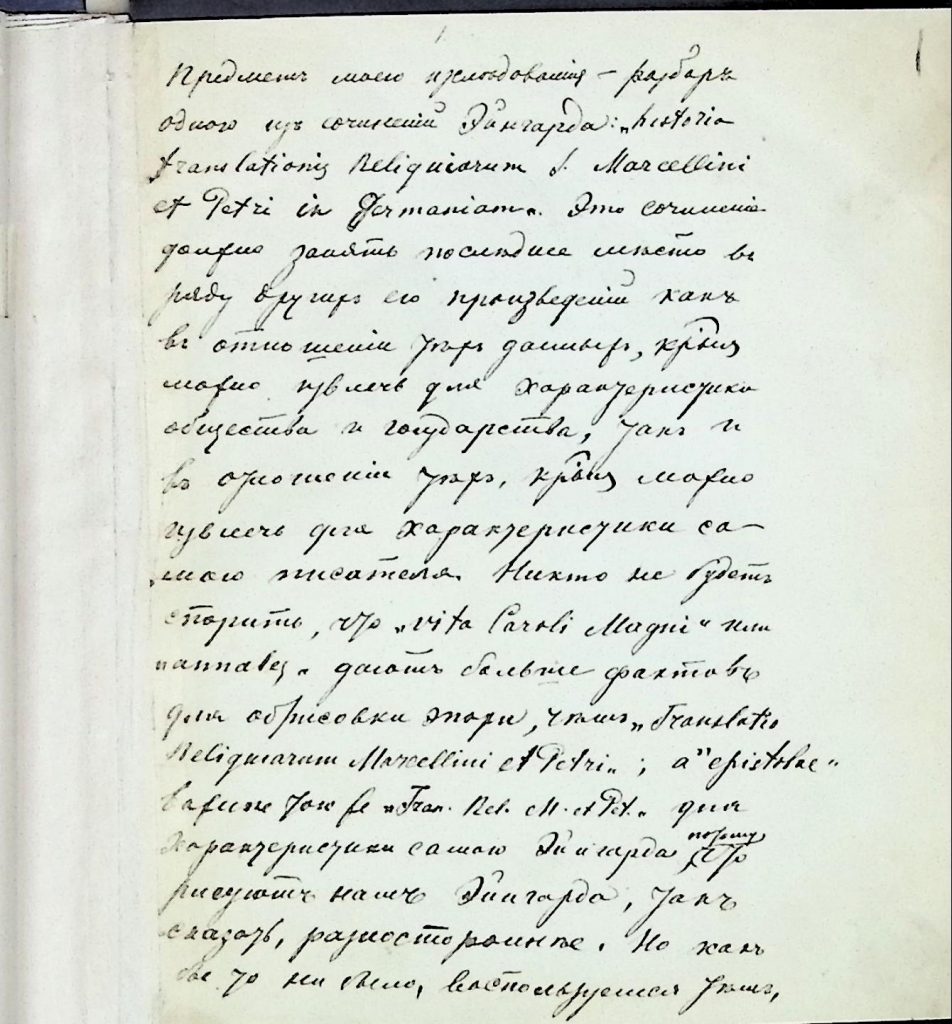 Предметъ моего изслѣдованія – разборъ
одного изъ сочиненій Эйнгарда: „historia
translationis Reliquiarum S. Marcellini
et Petri in Germaniam“. Это сочиненіе
должно занять послѣднее мѣсто въ
ряду другихъ его произведеній какъ
въ отношеніи тѣхъ данныхъ, крыя
можно извлечь для характеристики
общества и государства, такъ и
въ отношеніи тѣхъ, крыя можно
извлечь для характеристики са-
мого писателя. Никто не будетъ
спорить, что „vita Caroli Magni“ или
„annales“ даютъ больше фактовъ
для обрисовки эпохи, чѣмъ „Translatio
Reliquiarum Marcellini et Petri“; а „epistolae“
важнѣе той же „Tran. Rel. M. et Pet.“ для
характеристики самого Эйнгарда, потому что
рисуютъ намъ Эйнгарда, такъ
сказать, разностороннѣе. Но какъ
бы то ни было, воспользуемся тѣмъ,